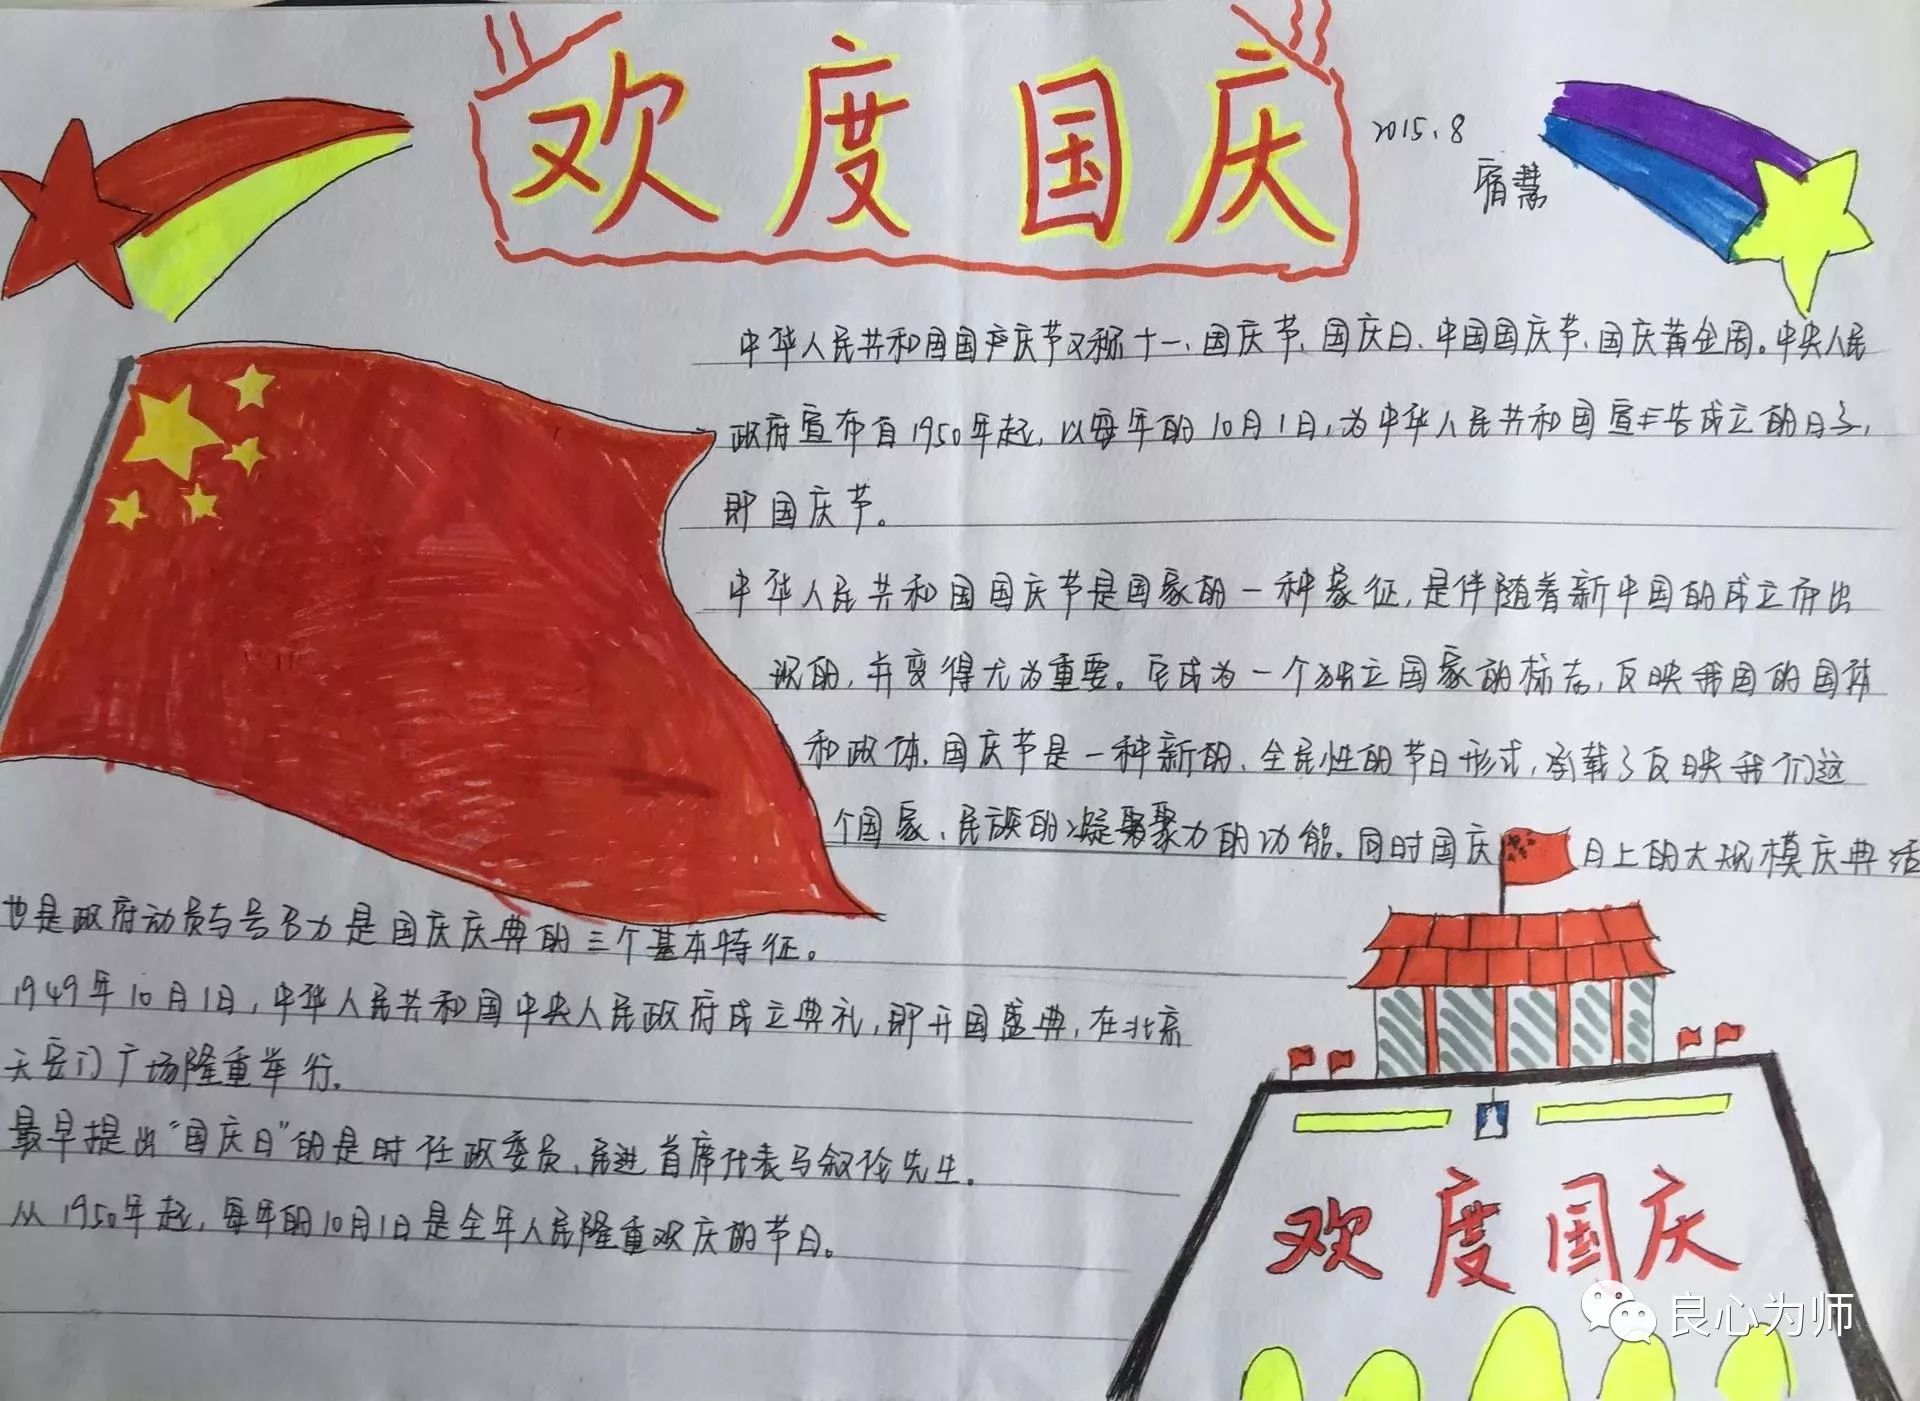 欢度国庆
2015.8
宿慧
中华人民共和国国庆节又称十一、国庆节、国庆日、中国国庆节、国庆黄金周。中央人民
政府宣布自1950年起,以每年的10月1日,为中华人民共和国宣告成立的日子,
即国庆节。
中华人民共和国国庆节是国家的一种象征,是伴随着新中国的成立而出
现的,并变得尤为重要。它成为一个独立国家的标志,反映我国的国体
和政体.国庆节是一种新的、全民性的节日形式,承载了反映我们这
个国家、民族的凝聚力的功能。同时国庆日上的大规模庆典活
也是政府动员与号召力是国庆庆典的三个基本特征。
1949年10月1日,中华人民共和国中央人民政府成立典礼,即开国盛典,在北京
天安门广场隆重举行.
最早提出“国庆日”的是时任政委员、民进首席代表马叙伦先生.
从1950年起,每年的10月1日是全年人民隆重欢庆的节日。
欢度国庆
良心为师